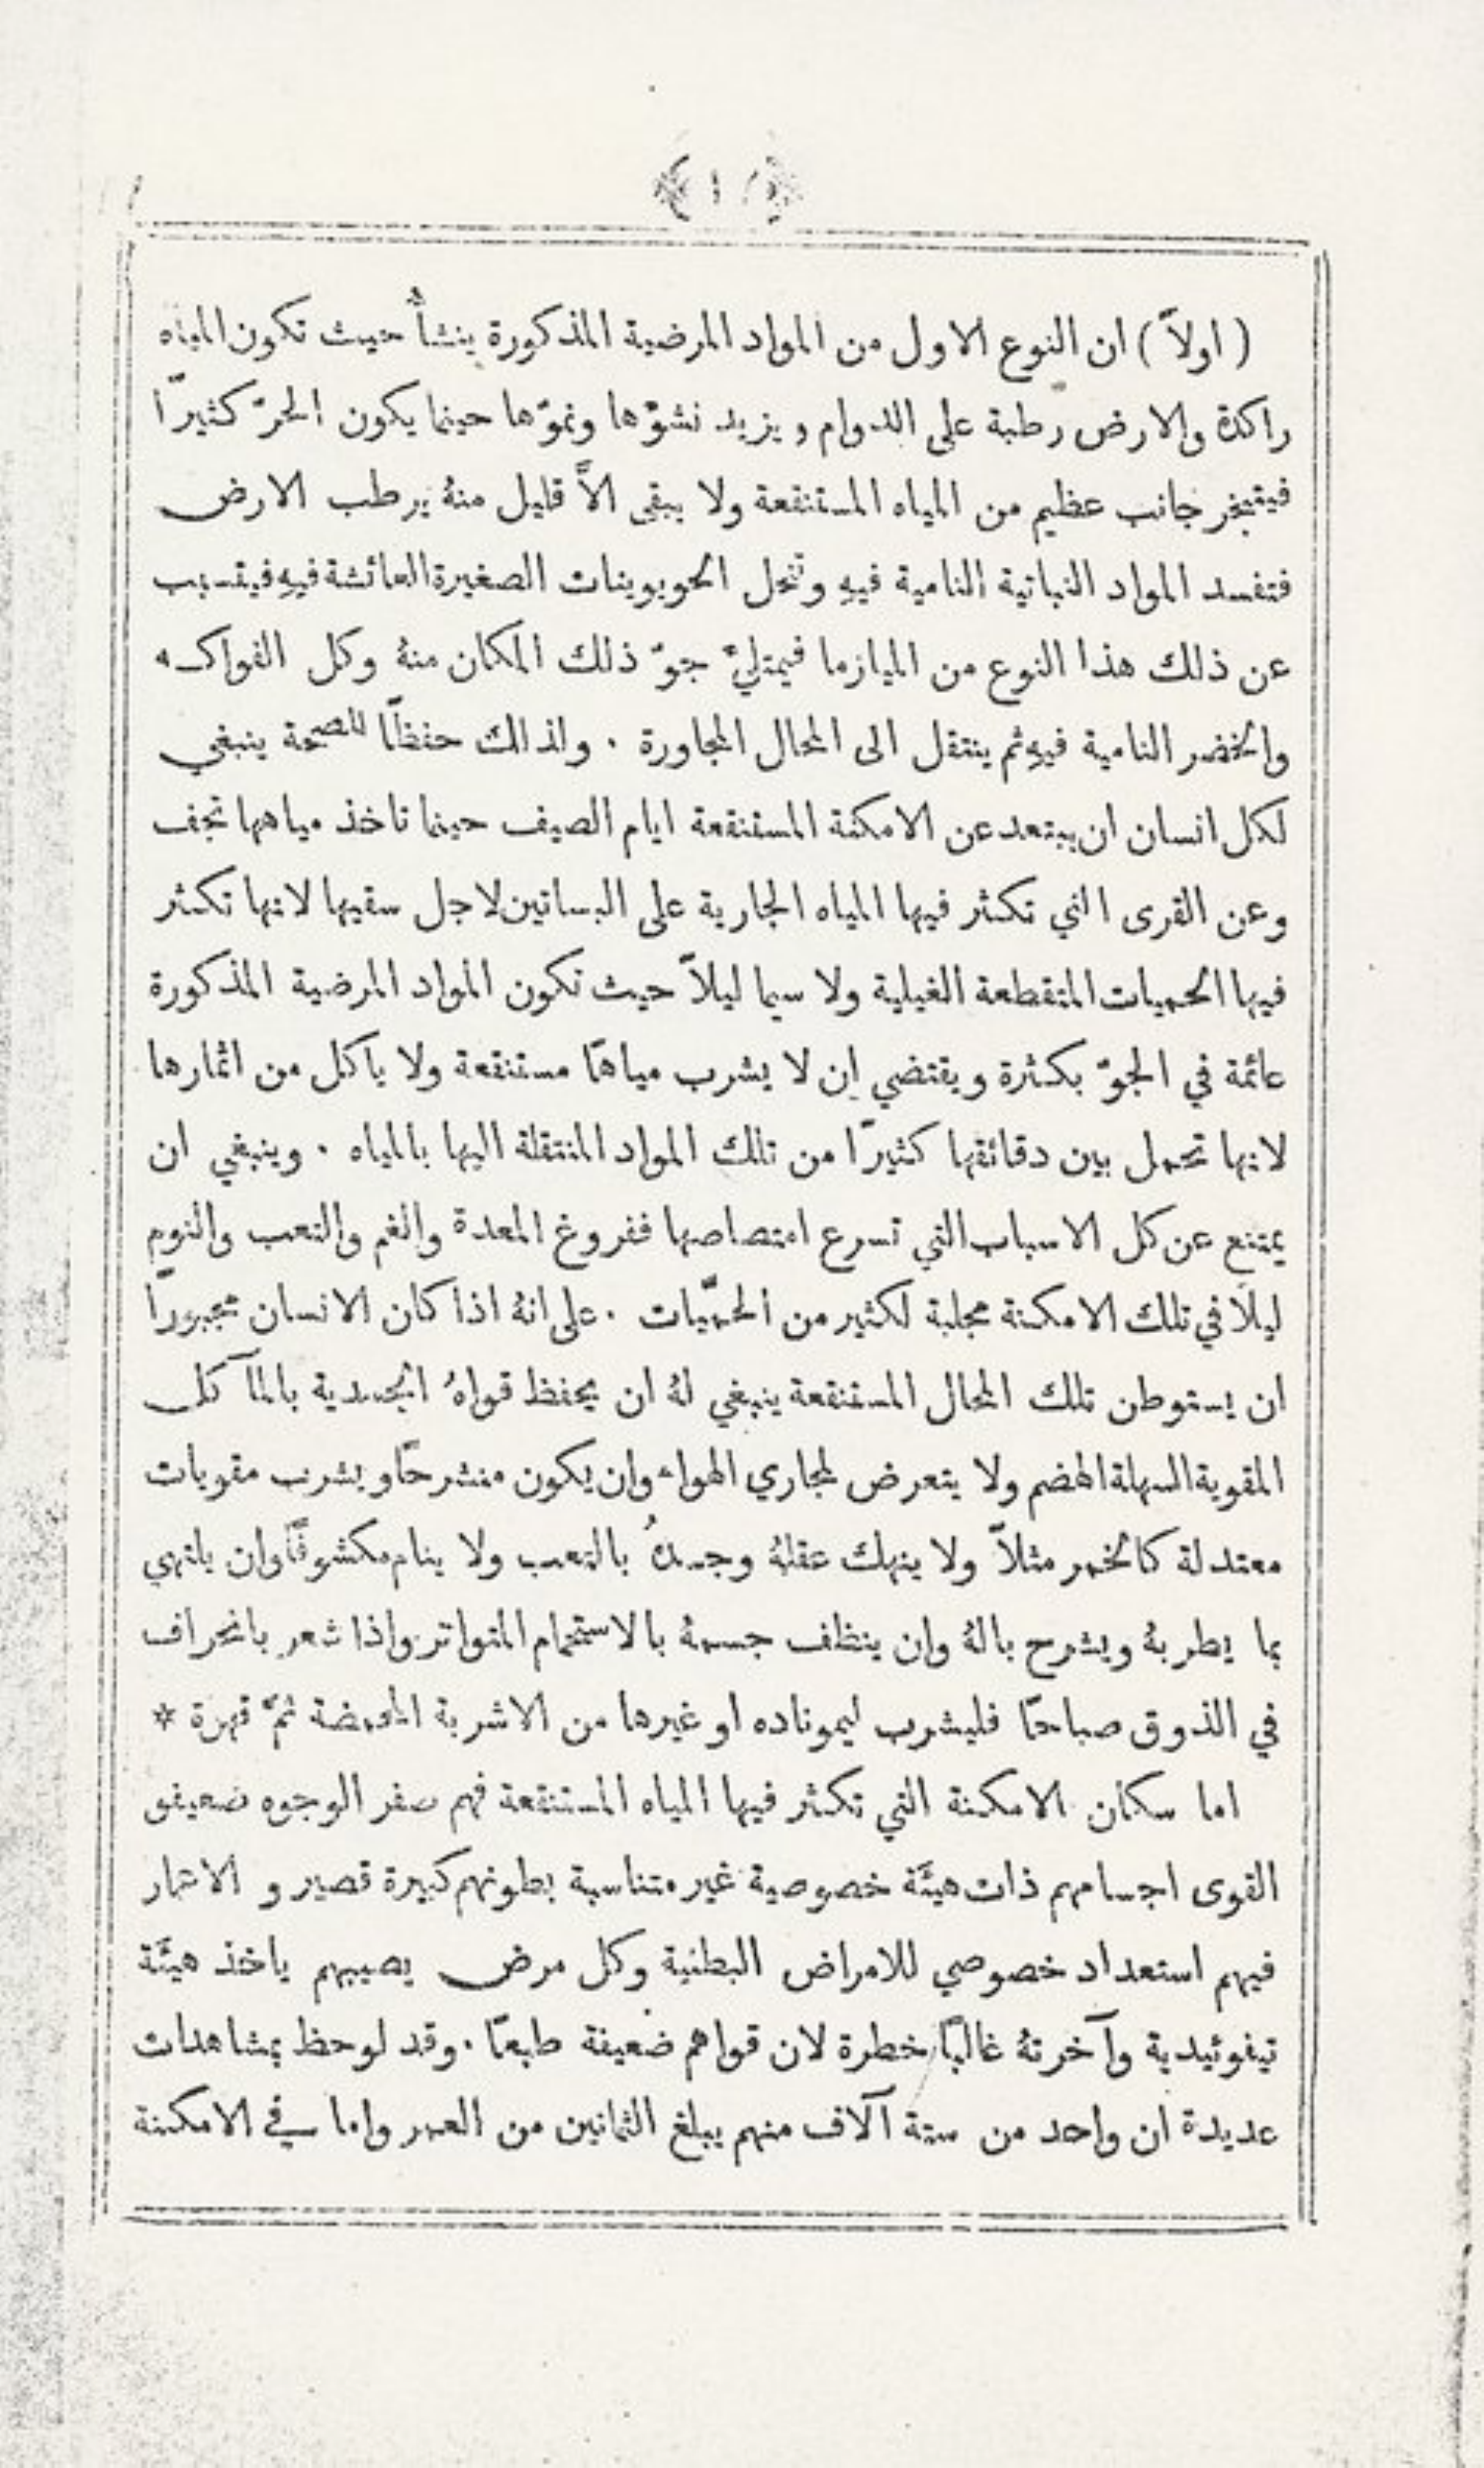 ( اولاً ) ان النوع الاول من المواد المرضية المذكورة ينشأُ حيث تكون المياه
راكدة والارض رطبة على الدوام ويزيد نشوّها ونموّها حينما يكون الحرّ كثيرًا
فيتبخر جانب عظيم من المياه المستنقعة ولا يبقى الاَّ قليل منهُ يرطب الارض
فتفسد المواد النباتية النامية فيهِ وتنحل الحويوينات الصغيرة العائشة فيهِ فيتسبب
عن ذلك هذا النوع من الميازما فيمتلئُ جوّ ذلك المكان منهُ وكل الفواكه
والخضر النامية فيهِ ثم ينتقل الى المحال المجاورة . ولذالك حفظًا للصحة ينبغي
لكل انسان ان يبتعد عن الامكنة المستنقعة ايام الصيف حينما تاخذ مياهها تجف
وعن القرى التي تكثر فيها المياه الجارية على البساتين لاجل سقيها لانها تكثر
فيها الحميات المتقطعة الغيلية ولا سيما ليلاً حيث تكون المواد المرضية المذكورة
عائمة في الجوّ بكثرة ويقتضي ان لا يشرب مياهًا مستنقعة ولا ياكل من اثمارها
لانها تحمل بين دقائقها كثيرًا من تلك المواد المنتقلة اليها بالمياه . وينبغي ان
يمتنع عن كل الاسباب التي تسرع امتصاصها ففروغ المعدة والغم والتعب والنوم
ليلاً في تلك الامكنة مجلبة لكثير من الحمّيات . على انهُ اذا كان الانسان مجبورًا
ان يستوطن تلك المحال المستنقعة ينبغي لهُ ان يحفظ قواهُ الجسدية بالمآكل
المقوية السهلة الهضم ولا يتعرض لمجاري الهواء وان يكون منشرحًا ويشرب مقويات
معتدلة كالخمر مثلاً ولا ينهك عقلهُ وجسدهُ بالتعب ولا ينام مكشوفًا وان يلتهي
بما يطربهُ ويشرح بالهُ وان ينظف جسمهُ بالاستحمام المتواتر واذا شعر بانحراف
في الذوق صباحًا فليشرب ليموناده او غيرها من الاشربة المحمضة ثمّ قهوة *
اما سكان الامكنة التي تكثر فيها المياه المستنقعة فهم صفر الوجوه ضعيفو
القوى اجسامهم ذات هيئَة خصوصية غير متناسبة بطونهم كبيرة قصيرو الاعمار
فيهم استعداد خصوصي للامراض البطنية وكل مرض يصيبهم ياخذ هيئَة
تيفوئيدية وآخرتهُ غالبًا خطرة لان قواهم ضعيفة طبعًا . وقد لوحظ بمشاهدات
عديدة ان واحد من ستة آلاف منهم يبلغ الثمانين من العمر واما في الامكنة